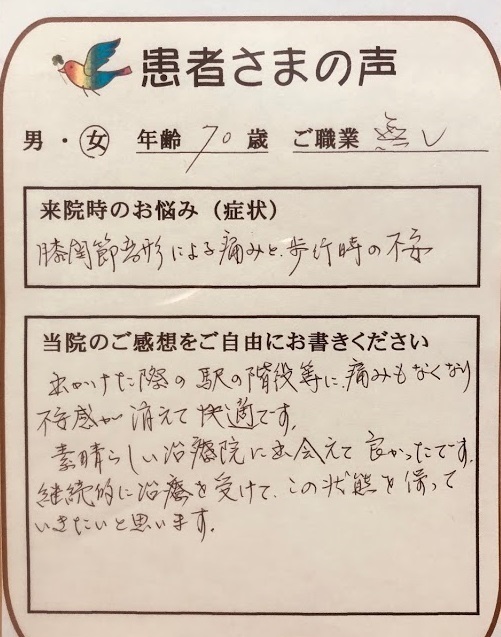 患者さまの声
男・女 年齢 70 歳 ご職業 無し
来院時のお悩み(症状)
膝関節変形による痛みと、歩行時の不安
当院のご感想をご自由にお書きください
出かけた際の駅の階段等に、痛みもなくなり
不安感が消えて快適です。
素晴らしい治療院に出会えて良かったです。
継続的に治療を受けて、この状態を保って
いきたいと思います。